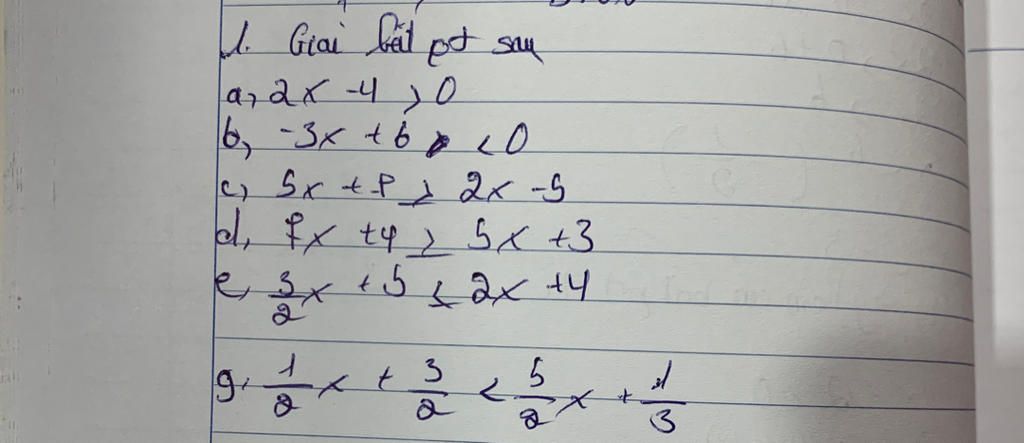 1. Giải bất pt sau
a, 2x - 4 > 0
b, -3x + 6 < 0
c, 5x + 7 ≥ 2x - 5
d, 7x + 4 ≥ 5x + 3
e, 3/2 x + 5 ≤ 2x + 4
g, 1/2 x + 3/2 < 5/2 x + 1/3